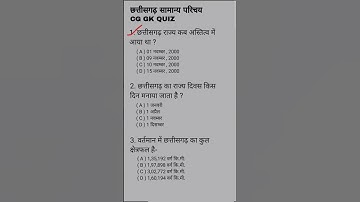 छत्तीसगढ़ सामान्य परिचय
CG GK QUIZ
1. छत्तीसगढ़ राज्य कब अस्तित्व में
आया था ?
( A ) 01 नवम्बर, 2000
( B ) 09 नवम्बर, 2000
( C ) 10 नवम्बर, 2000
( D ) 15 नवम्बर, 2000
2. छत्तीसगढ़ का राज्य दिवस किस
दिन मनाया जाता है ?
( A ) 1 जनवरी
( B ) 1 अप्रैल
( C ) 1 नवम्बर
( D ) 1 दिसम्बर
3. वर्तमान में छत्तीसगढ़ का कुल
क्षेत्रफल है-
( A ) 1,35,192 वर्ग कि.मी.
( B ) 1,97,898 वर्ग कि.मी.
( C ) 3,02,772 वर्ग कि.मी.
( D ) 1,60,194 वर्ग कि.मी.